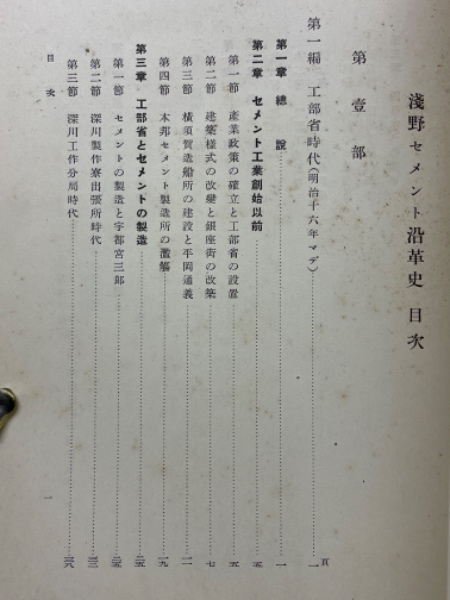 淺野セメント沿革史 目次
第壹部
頁
第一編 工部省時代(明治十六年マデ)……一
第一章 總說……一
第二章 セメント工業創始以前……五
第一節 產業政策の確立と工部省の設置……五
第二節 建築樣式の改變と銀座街の改築……七
第三節 橫須賀造船所の建設と平岡通義……一一
第四節 本邦セメント製造所の濫觴……一九
第三章 工部省とセメントの製造……二五
第一節 セメントの製造と宇都宮三郞……二五
第二節 深川製作寮出張所時代……三三
第三節 深川工作分局時代……三八
目次
一